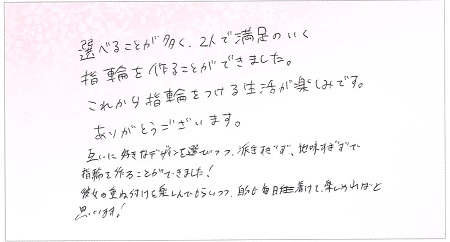 選べることが多く、2人で満足のいく
指輪を作ることができました。
これから指輪をつける生活が楽しみです。
ありがとうございます。
互いに好きなデザインを選びつつ、派手すぎず、地味すぎずで
指輪を作ることができました!
彼女の重ね付けを楽しんでもらいつつ、自分も毎日着けて、楽しめればと
思います!